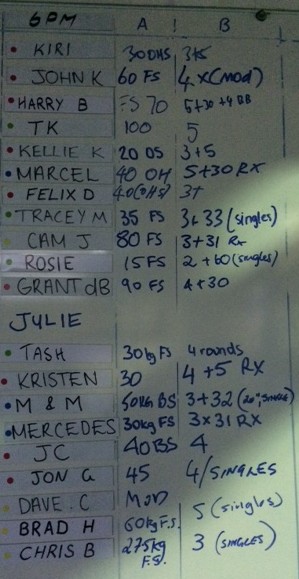 6PM A B
KIRI 30 DHS 3+5
JOHN K 60 FS 4 x (mod)
HARRY B FS 70 5+30
TK 100 5
KELLIE K 20 DS 3+5
MARCEL 40 OH 5+30 RX
FELIX D 40 (OHS) 3+
TRACEY M 35 FS 3+33 (singles)
CAM J 80 FS 3+31 Rx
ROSIE 15 FS 2+60 (singles)
GRANT dB 90 FS 4+30
JULIE
TASH 30kg FS 4 rounds
KRISTEN 30 4+5 RX
M & M 50kg BS 3+32
MERCEDES 30kg FS 3x31 RX
JC 40 BS 4
JON G 45 4/SINGLES
DAVE. C MOD 5 (singles)
BRAD H 60kg F.S.
CHRIS B 27.5kg F.S. 3 (SINGLES)